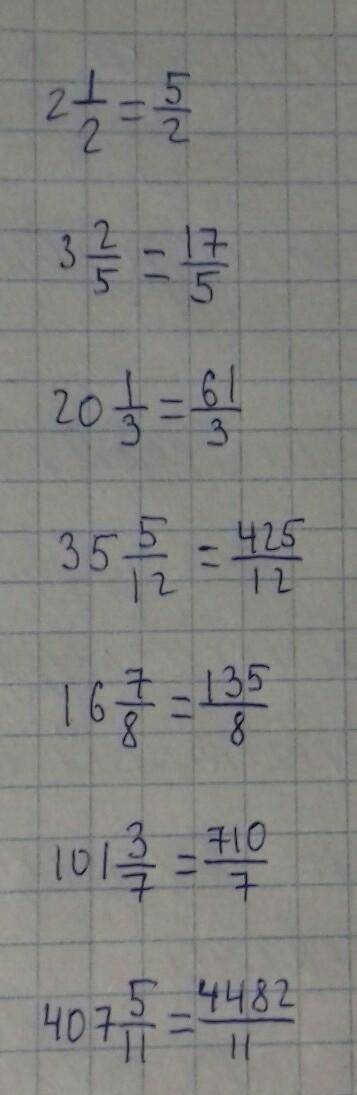 2 1/2 = 5/2
3 2/5 = 17/5
20 1/3 = 61/3
35 5/12 = 425/12
16 7/8 = 135/8
101 3/7 = 710/7
407 5/11 = 4482/11